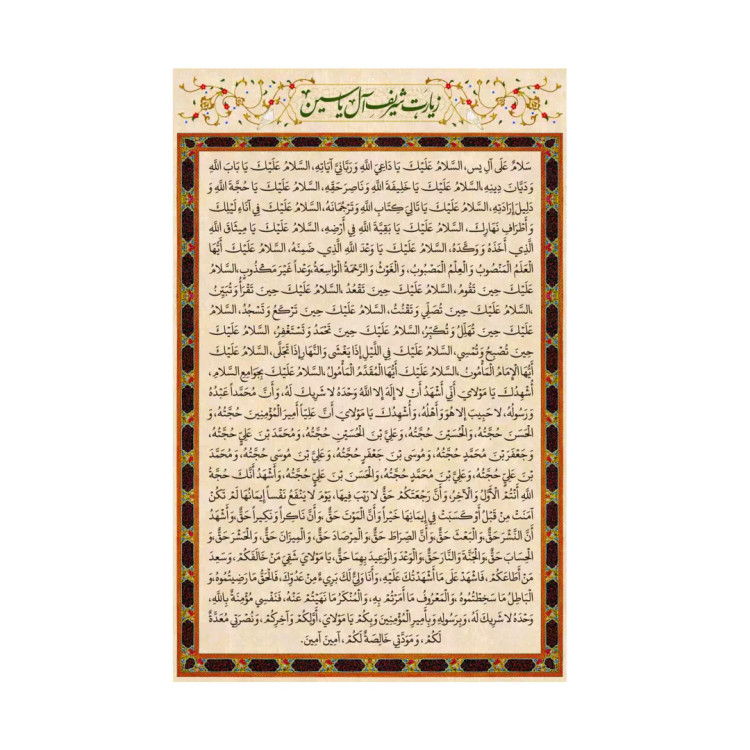 زیارت شریف آل یاسین
سَلامٌ عَلَى آلِ يس، السَّلامُ عَلَيْكَ يَا دَاعِيَ اللَّهِ وَ رَبَّانِيَّ آيَاتِهِ، السَّلامُ عَلَيْكَ يَا بَابَ اللَّهِ
وَ دَيَّانَ دِينِهِ ،السَّلامُ عَلَيْكَ يَا خَلِيفَةَ اللَّهِ وَ نَاصِرَ حَقِّهِ، السَّلامُ عَلَيْكَ يَا حُجَّةَ اللَّهِ وَ
دَلِيلَ إِرَادَتِهِ، السَّلامُ عَلَيْكَ يَا تَالِيَ كِتَابِ اللَّهِ وَ تَرْجُمَانَهُ، السَّلامُ عَلَيْكَ فِي آنَاءِ لَيْلِكَ
وَ أَطْرَافِ نَهَارِكَ، السَّلامُ عَلَيْكَ يَا بَقِيَّةَ اللَّهِ فِي أَرْضِهِ، السَّلامُ عَلَيْكَ يَا مِيثَاقَ اللَّهِ
الَّذِي أَخَذَهُ وَ وَكَّدَهُ، السَّلامُ عَلَيْكَ يَا وَعْدَ اللَّهِ الَّذِي ضَمِنَهُ، السَّلامُ عَلَيْكَ أَيُّهَا
الْعَلَمُ الْمَنْصُوبُ وَ الْعِلْمُ الْمَصْبُوبُ، وَ الْغَوْثُ وَ الرَّحْمَةُ الْوَاسِعَةُ، وَعْداً غَيْرَ مَكْذُوبٍ،السَّلامُ
عَلَيْكَ حِينَ تَقُومُ، السَّلامُ عَلَيْكَ حِينَ تَقْعُدُ ،السَّلامُ عَلَيْكَ حِينَ تَقْرَأُ وَ تُبَيِّنُ
،السَّلامُ عَلَيْكَ حِينَ تُصَلِّي وَ تَقْنُتُ، السَّلامُ عَلَيْكَ حِينَ تَرْكَعُ وَ تَسْجُدُ، السَّلامُ
عَلَيْكَ حِينَ تُهَلِّلُ وَ تُكَبِّرُ، السَّلامُ عَلَيْكَ حِينَ تَحْمَدُ وَ تَسْتَغْفِرُ، السَّلامُ عَلَيْكَ
حِينَ تُصْبِحُ وَ تُمْسِي، السَّلامُ عَلَيْكَ فِي اللَّيْلِ إِذَا يَغْشَى وَ النَّهَارِ إِذَا تَجَلَّى، السَّلامُ عَلَيْكَ
أَيُّهَا الْإِمَامُ الْمَأْمُونُ،السَّلامُ عَلَيْكَ أَيُّهَا الْمُقَدَّمُ الْمَأْمُولُ،السَّلامُ عَلَيْكَ بِجَوَامِعِ السَّلامِ،
أُشْهِدُكَ يَا مَوْلايَ، أَنِّي أَشْهَدُ أَنْ لا إِلَهَ إِلا اللَّهُ وَحْدَهُ لا شَرِيكَ لَهُ، وَ أَنَّ مُحَمَّداً عَبْدُهُ
وَ رَسُولُهُ، لا حَبِيبَ إِلا هُوَ وَ أَهْلُهُ، وَ أُشْهِدُكَ يَا مَوْلايَ أَنَّ عَلِيّاً أَمِيرَ الْمُؤْمِنِينَ حُجَّتُهُ، وَ
الْحَسَنَ حُجَّتُهُ، وَ الْحُسَيْنَ حُجَّتُهُ، وَ عَلِيَّ بْنَ الْحُسَيْنِ حُجَّتُهُ، وَ مُحَمَّدَ بْنَ عَلِيٍّ حُجَّتُهُ،
وَ جَعْفَرَ بْنَ مُحَمَّدٍ حُجَّتُهُ، وَ مُوسَى بْنَ جَعْفَرٍ حُجَّتُهُ، وَ عَلِيَّ بْنَ مُوسَى حُجَّتُهُ، وَ مُحَمَّدَ
بْنَ عَلِيٍّ حُجَّتُهُ، وَ عَلِيَّ بْنَ مُحَمَّدٍ حُجَّتُهُ، وَ الْحَسَنَ بْنَ عَلِيٍّ حُجَّتُهُ، وَ أَشْهَدُ أَنَّكَ حُجَّةُ
اللَّهِ أَنْتُمُ الْأَوَّلُ وَ الْآخِرُ، وَ أَنَّ رَجْعَتَكُمْ حَقٌّ لا رَيْبَ فِيهَا، يَوْمَ لا يَنْفَعُ نَفْساً إِيمَانُهَا لَمْ تَكُنْ
آمَنَتْ مِنْ قَبْلُ أَوْ كَسَبَتْ فِي إِيمَانِهَا خَيْراً وَ أَنَّ الْمَوْتَ حَقٌّ ،وَ أَنَّ نَاكِراً وَ نَكِيراً حَقٌّ،وَ أَشْهَدُ
أَنَّ النَّشْرَ حَقٌّ،وَ الْبَعْثَ حَقٌّ، وَ أَنَّ الصِّرَاطَ حَقٌّ، وَ الْمِرْصَادَ حَقٌّ، وَ الْمِيزَانَ حَقٌّ، وَ الْحَشْرَ حَقٌّ،وَ
الْحِسَابَ حَقٌّ،وَ الْجَنَّةَ وَ النَّارَ حَقٌّ،وَ الْوَعْدَ وَ الْوَعِيدَ بِهِمَا حَقٌّ، يَا مَوْلايَ شَقِيَ مَنْ خَالَفَكُمْ، وَ سَعِدَ
مَنْ أَطَاعَكُمْ، فَاشْهَدْ عَلَى مَا أَشْهَدْتُكَ عَلَيْهِ، وَ أَنَا وَلِيٌّ لَكَ بَرِيءٌ مِنْ عَدُوِّكَ، فَالْحَقُّ مَا رَضِيتُمُوهُ،وَ
الْبَاطِلُ مَا سَخِطْتُمُوهُ،وَ الْمَعْرُوفُ مَا أَمَرْتُمْ بِهِ، وَ الْمُنْكَرُ مَا نَهَيْتُمْ عَنْهُ، فَنَفْسِي مُؤْمِنَةٌ بِاللَّهِ،
وَحْدَهُ لا شَرِيكَ لَهُ، وَ بِرَسُولِهِ وَ بِأَمِيرِ الْمُؤْمِنِينَ وَ بِكُمْ يَا مَوْلايَ، أَوَّلِكُمْ وَ آخِرِكُمْ، وَ نُصْرَتِي مُعَدَّةٌ
لَكُمْ، وَ مَوَدَّتِي خَالِصَةٌ لَكُمْ، آمِينَ آمِينَ.